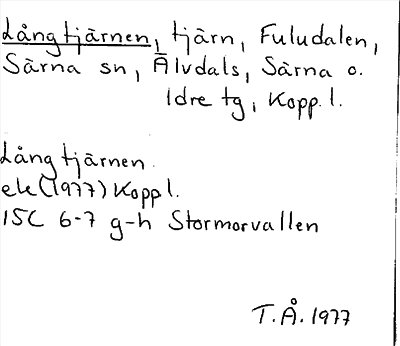 Långtjärnen, tjärn, Fuludalen,
Särna sn, Älvdals, Särna o.
Idre tg, Kopp.l.
Långtjärnen.
ek(1977) Koppl.
15C 6-7 g-h Stormorvallen
T.Å. 1977